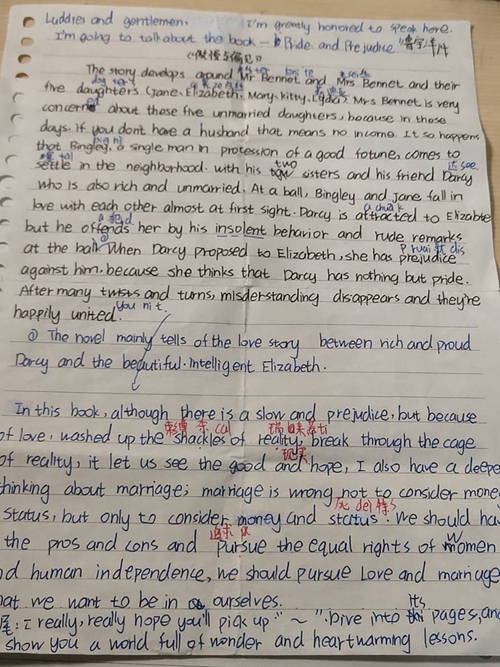 Luddies and gentlemen. I'm greatly honored to speak here.
I'm going to talk about the book — Pride and Prejudice
《傲慢与偏见》
The story develops around Mr Bennet and Mrs Bennet and their
five daughters (Jane. Elizabeth. Mary. Kitty. Lydia). Mrs Bennet is very
concerned about those five unmarried daughters, because in those
days. If you don't have a husband that means no income. It so happens
that Bingley, a single man in protession of a good fotune, comes to
settle in the neighborhood. with his two sisters and his friend Darcy
who is also rich and unmarried. At a ball, Bingley and Jane fall in
love with each other almost at first sight. Darcy is attracted to Elizabe
but he offends her by his insolent behavior and rude remarks
at the ball. When Darcy proposed to Elizabeth, she has prejudice
against him. because she thinks that Darcy has nothing but pride.
After many twists and turns, misderstanding disappears and they're
happily united. you nit
① The novel mainly tells of the love story between rich and proud
Darcy and the beautiful. intelligent Elizabeth.
In this book, although there is a slow and prejudice, but because
of love, washed up the shackles of reality, break through the cage
of reality, it let us see the good and hope, I also have a deepe
thinking about marriage; marriage is wrong not to consider mone
status, but only to consider money and status. We should ha
the pros and cons and pursue the equal rights of women
nd human independence, we should pursue love and marriage
hat we want to be in ourselves.
尾: I really, really hope you'll pick up "~". Dive into its pages, and
show you a world full of wonder and heartwarming lessons.